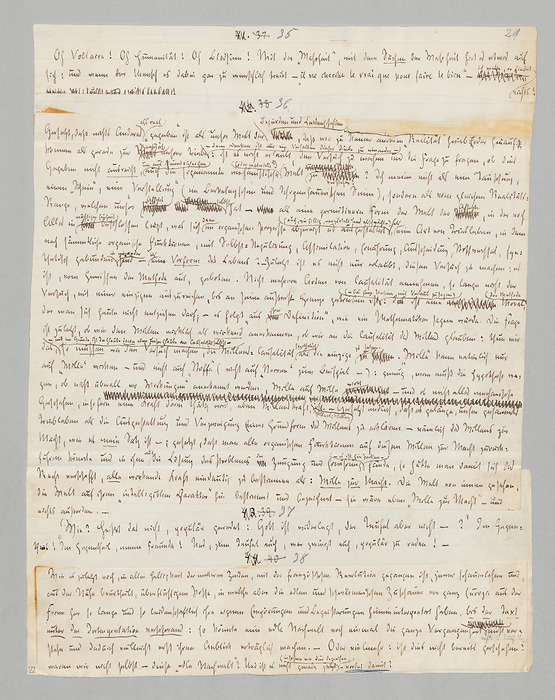 35
29
Oh Voltaire! Oh Humanität! Oh Blödsinn! Mit der „Wahrheit“, mit dem Suchen der Wahrheit hat es etwas auf
sich; und wenn der Mensch es dabei gar zu menschlich treibt — „il ne cherche le vrai que pour faire le bien“ — ich wette, er findet
nichts!
36
Gesetzt, daß nichts Anderes als real „gegeben“ ist als unsre Welt der Begierden und Leidenschaften, daß wir zu keiner anderen „Realität“ hinab oder hinauf
können als gerade zur Realität unsrer Triebe — denn Denken ist nur ein Verhalten dieser Triebe zu einander —: ist es nicht erlaubt, den Versuch zu machen und die Frage zu fragen, ob dies
Gegeben nicht ausreicht, auch die sogenannte mechanistische Welt zu verstehen? Ich meine nicht als eine Täuschung,
einen Schein, eine Vorstellung (im Berkeleyschen und Schopenhauerschen Sinne), sondern als vom gleichen Realitäts-
Range, welchen unser Affekt selbst hat — als eine primitivere Form der Welt der Affekte, in der noch
Alles in mächtiger Einheit beschlossen liegt, was sich dann im organischen Prozesse abzweigt und ausgestaltet, als eine Art von Triebleben, in dem
noch sämmtliche organische Funktionen, mit Selbst-Regulirung, Assimilation, Ernährung, Ausscheidung, Stoffwechsel, syn-
thetisch gebunden sind — als eine Vorform des Lebens? — Zuletzt ist es nicht nur erlaubt, diesen Versuch zu machen: es
ist, vom Gewissen der Methode aus, geboten. Nicht mehrere Arten von Causalität annehmen, so lange nicht der
Versuch, mit einer einzigen auszureichen, bis an seine äußerste Grenze getrieben ist: das ist eine Moral der Methode,
der man sich heute nicht entziehen darf; — es folgt „aus ihrer Definition“, wie ein Mathematiker sagen würde. Die Frage
ist zuletzt, ob wir den Willen wirklich als wirkend anerkennen, ob wir an die Causalität des Willens glauben: thun wir
das, so müssen wir den Versuch machen, die Willens-Causalität als die einzige zu setzen. „Wille“ kann natürlich nur
auf „Wille“ wirken — und nicht auf „Stoffe“ (nicht auf „Nerven“ zum Beispiel —): genug, man muß die Hypothese wa-
gen, ob nicht überall, wo „Wirkungen“ anerkannt werden, Wille auf Wille wirkt — und ob nicht alles mechanische
Geschehen, insofern eine Kraft darin thätig wird, eben Willenskraft
Triebleben als die Ausgestaltung und Verzweigung Einer Grundform des Willens zu erklären — nämlich des Willens zur
Macht, wie es mein Satz ist —; gesetzt, daß man alle organischen Funktionen auf diesen Willen zur Macht zurück-
führen könnte und in ihm auch die Lösung des Problems der Zeugung und Ernährung fände, so hätte man damit sich das
Recht verschafft, alle wirkende Kraft eindeutig zu bestimmen als: Wille zur Macht. Die Welt von innen gesehen,
die Welt auf ihren „intelligiblen Charakter“ hin bestimmt und bezeichnet — sie wäre eben „Wille zur Macht“ und
nichts außerdem. —
37
„Wie? Heißt das nicht, populär geredet: Gott ist widerlegt, der Teufel aber nicht —?“ Im Gegen-
theil! Im Gegentheil, meine Freunde! Und, zum Teufel auch, wer zwingt euch, populär zu reden! —
38
Wie es zuletzt noch, in aller Helligkeit der neueren Zeiten, mit der französischen Revolution gegangen ist, jener schauerlichen und,
aus der Nähe beurtheilt, überflüssigen Posse, in welche aber die edlen und schwärmerischen Zuschauer von ganz Europa aus der
Ferne her so lange und so leidenschaftlich ihre eignen Empörungen und Begeisterungen hinein interpretirt haben, bis der Text
unter der Interpretation verschwand: so könnte eine edle Nachwelt noch einmal die ganze Vergangenheit mißver-
stehn und dadurch vielleicht erst ihren Anblick erträglich machen. — Oder vielmehr: ist dies nicht bereits geschehen?
waren wir nicht selbst — diese „edle Nachwelt“? Und ist es nicht gerade jetzt, insofern wir dies begreifen, — vorbei damit?